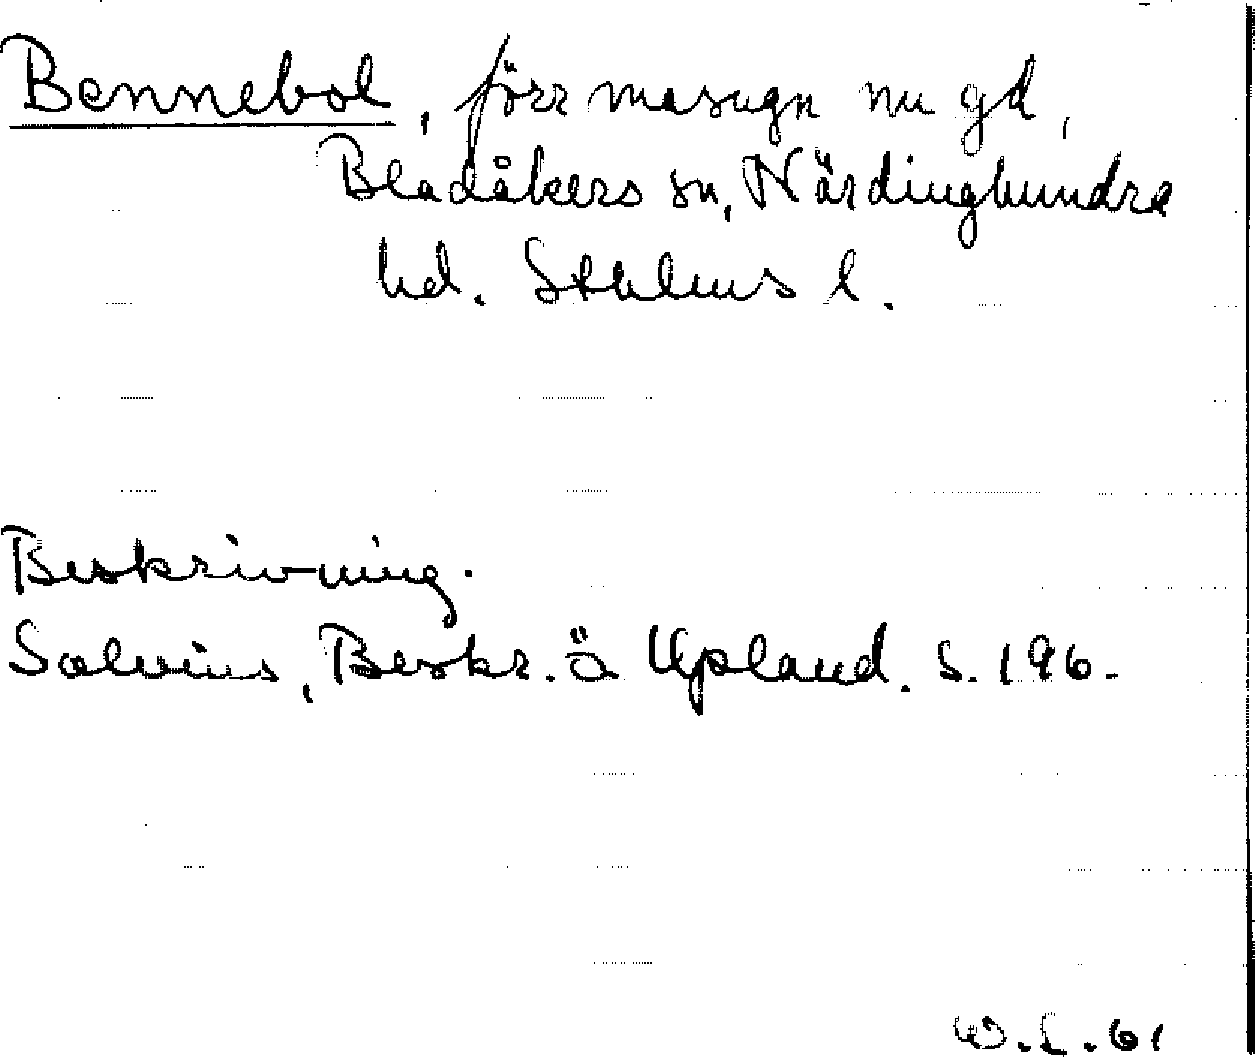 Bennebol, förr masugn nu gd,
Bladåkers sn, Närdinghundra
hd. Sthlms l.
Beskrivning.
Salvius, Beskr. ö Upland. S. 196.
W.L.61